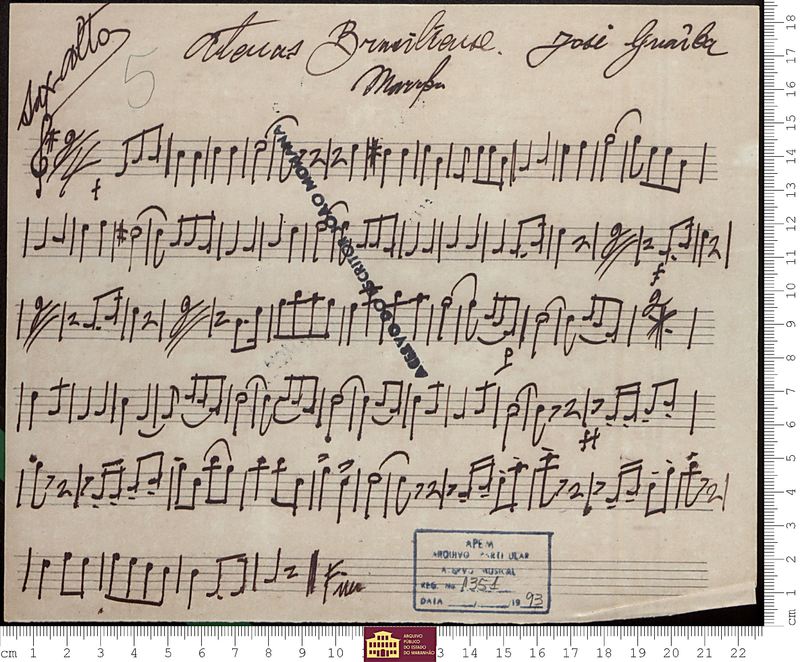 Sax alto
5
Atenas Brasiliense. José Guaíba
Marcha
f
ACERVO DO ESCRITOR JOÃO MOHANA
f
p
ff
Fim
APEM
ARQUIVO PARTICULAR
ACERVO MUSICAL
REG. No 1351
DATA ___/___/19 93
cm 1 2 3 4 5 6 7 8 9 10 13 14 15 16 17 18 19 20 21 22
cm 1 2 3 4 5 6 7 8 9 10 11 12 13 14 15 16 17 18
ARQUIVO
PÚBLICO
DO ESTADO
DO MARANHÃO